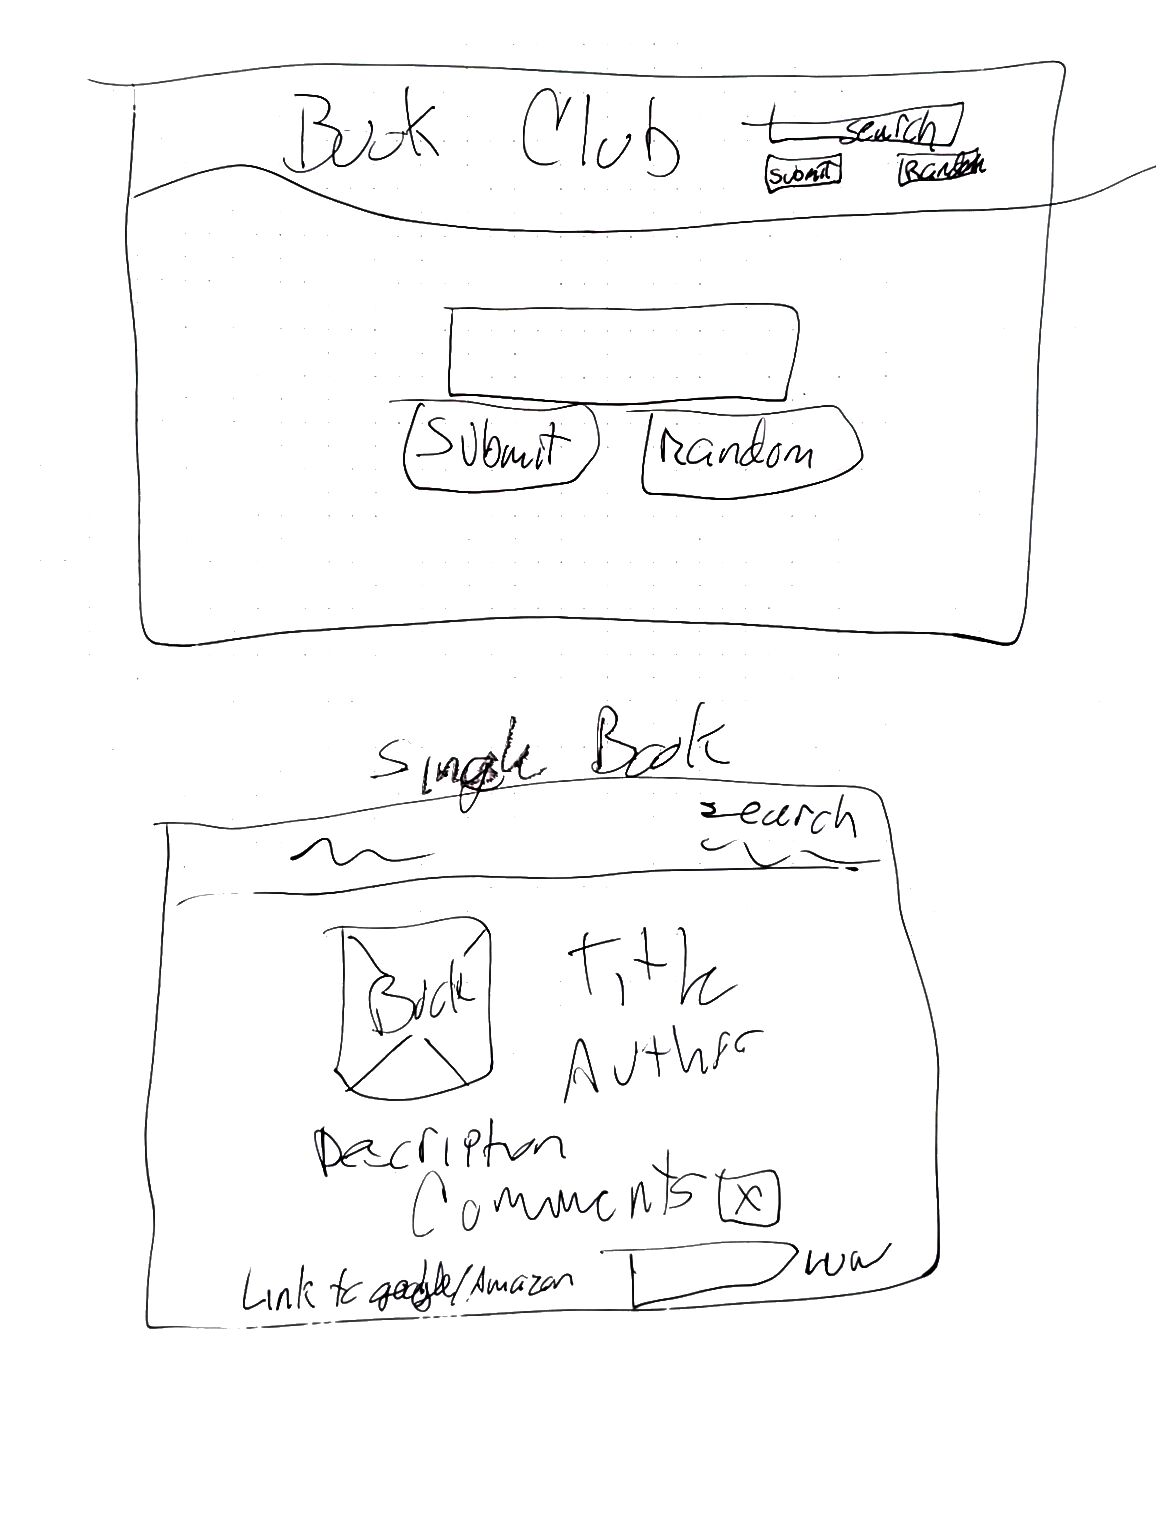 Book Club
search
Submit Random
Submit Random
Single Book
search
Book
Title
Author
Description
Comments X
Link to google/Amazon